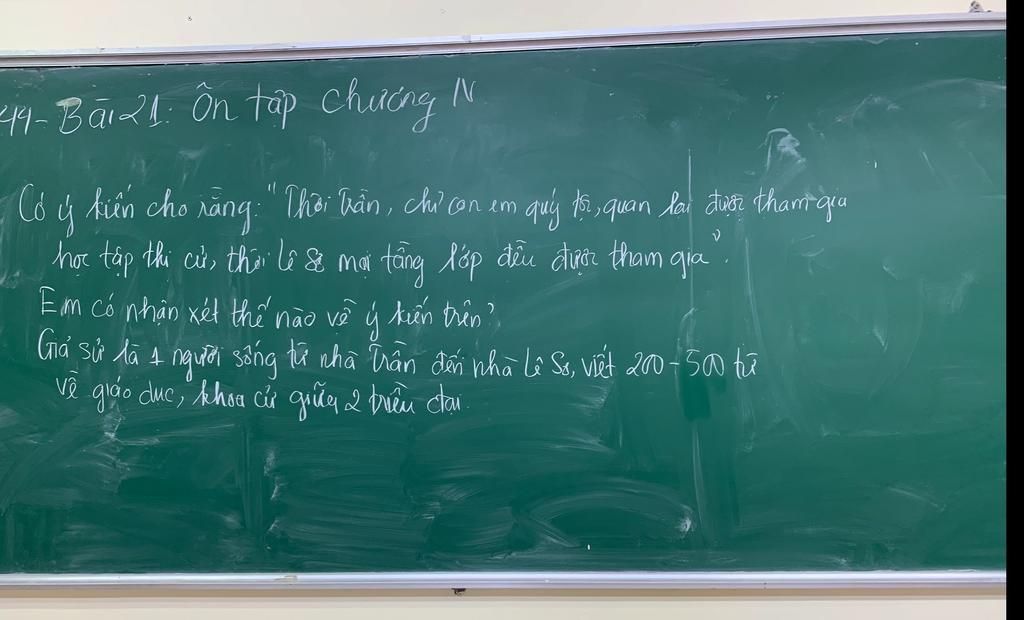 44- Bài 21: Ôn tập chương IV
Có ý kiến cho rằng: "Thời Trần, chỉ con em quý tộc, quan lại được tham gia
học tập thi cử, thời Lê Sơ mọi tầng lớp đều được tham gia".
Em có nhận xét thế nào về ý kiến trên?
Giả sử là 1 người sống từ nhà Trần đến nhà Lê Sơ, viết 200-500 từ
về giáo dục, khoa cử giữa 2 triều đại.